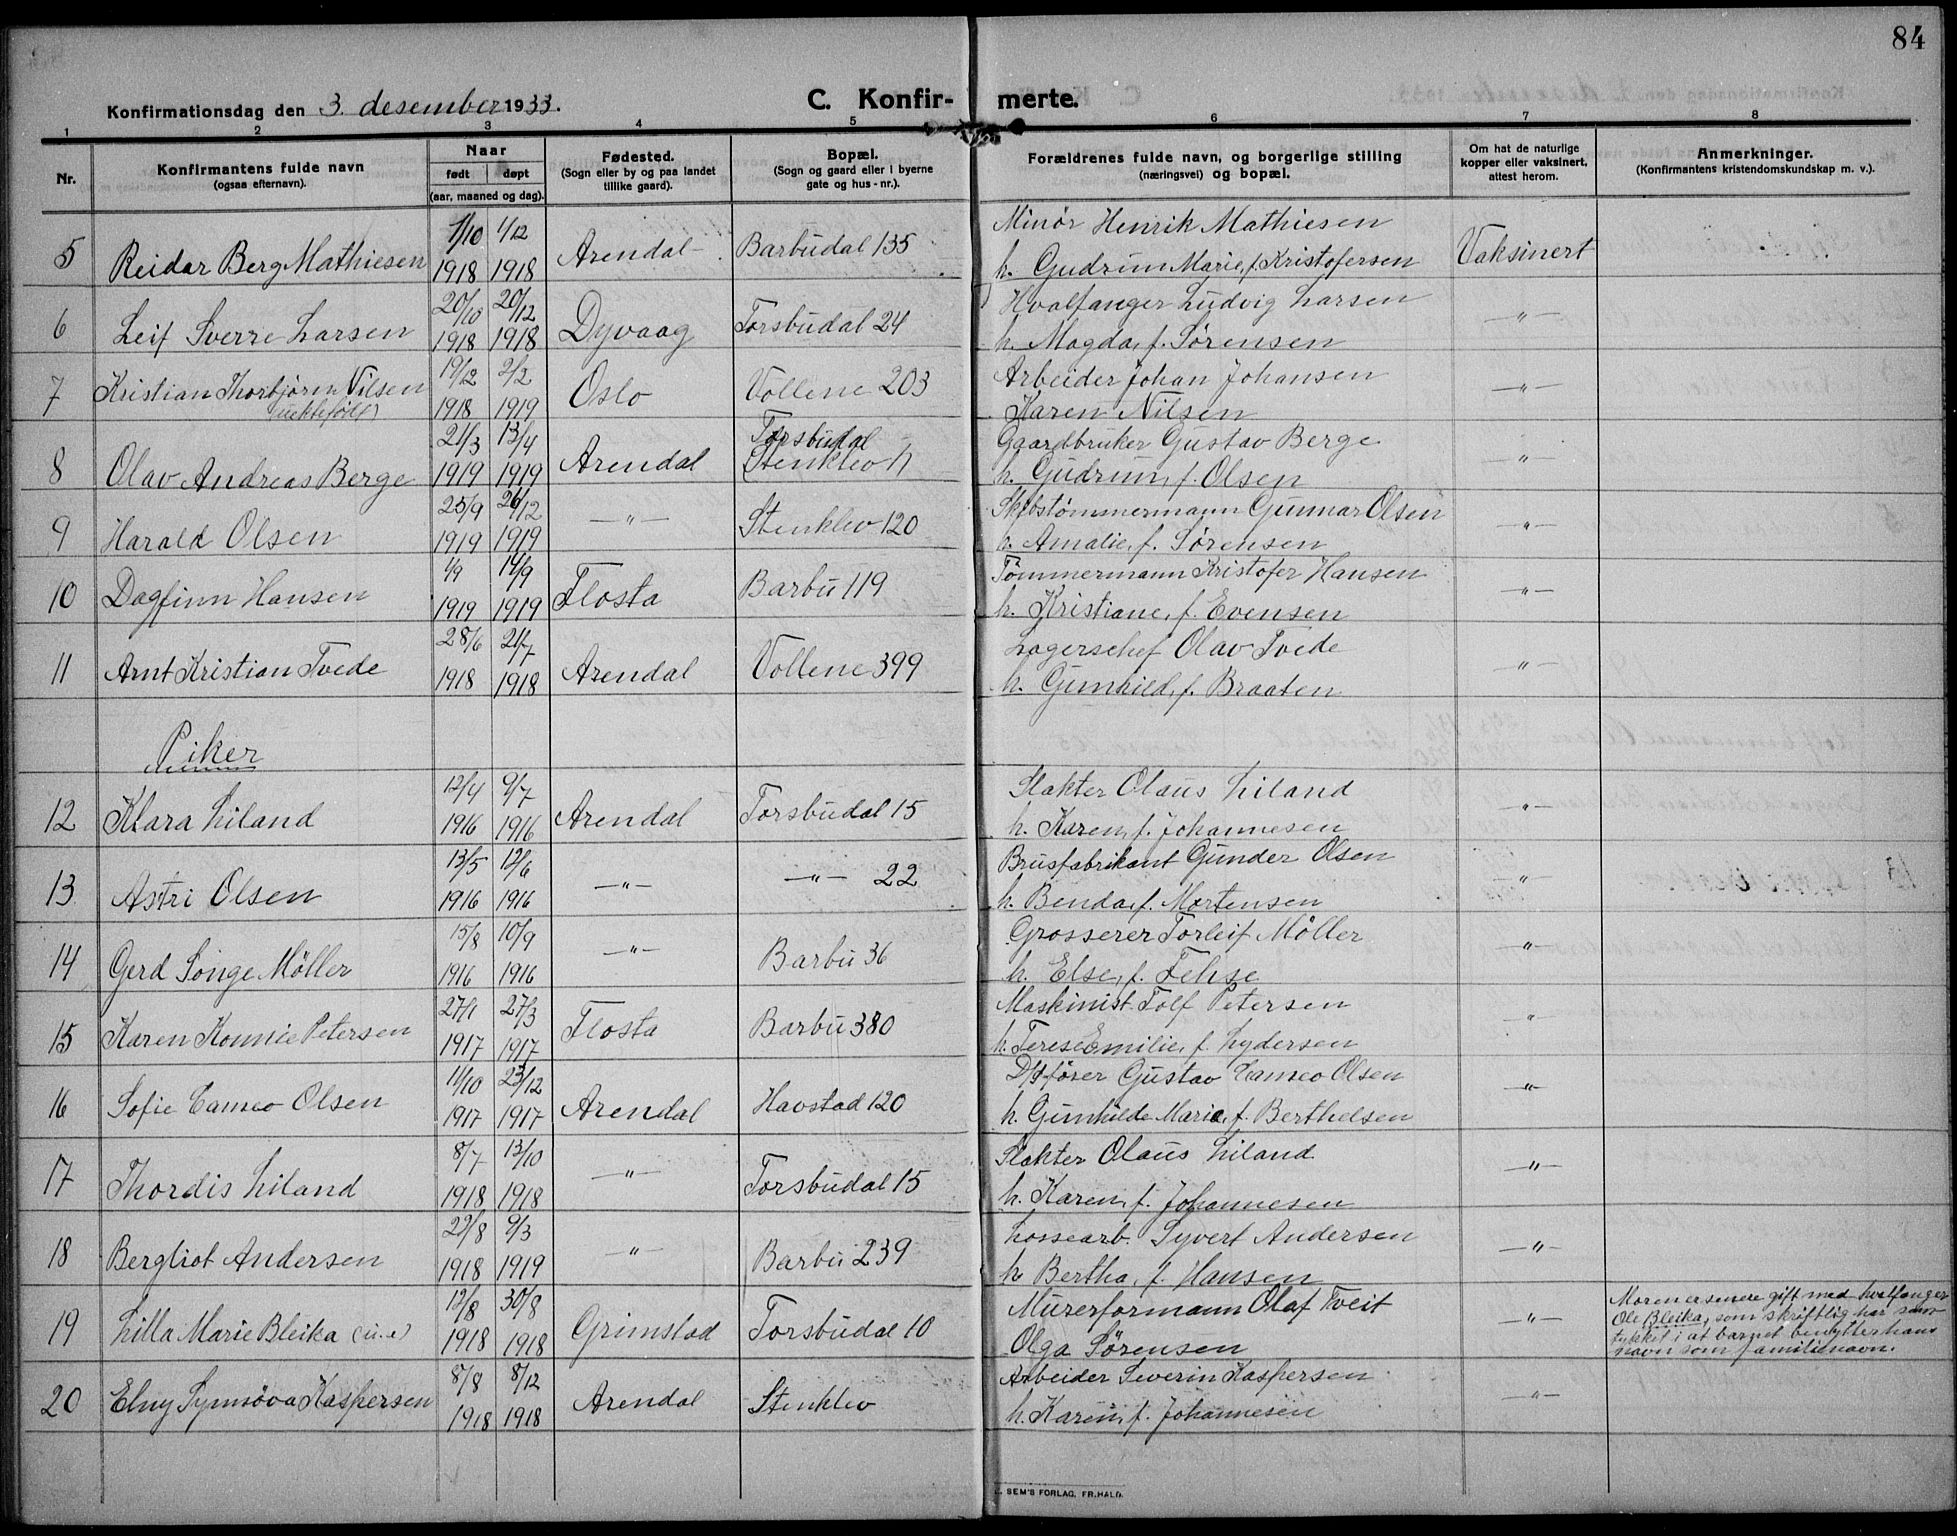 84
Konfirmationsdag den 3. desember 1933.
C. Konfir- merte.
1 2 3 4 5 6 7 8
Nr.
Konfirmantens fulde navn
(ogsaa efternavn).
Naar
født døpt
(aar, maaned og dag).
Fødested.
(Sogn eller by og paa landet
tillike gaard).
Bopæl.
(Sogn og gaard eller i byerne
gate og hus-nr.).
Forældrenes fulde navn, og borgerlige stilling
(næringsvei) og bopæl.
Om hat de naturlige
kopper eller vaksinert,
attest herom.
Anmerkninger.
(Konfirmantens kristendomskundskap m. v.).
1/10 1/12 Minør Henrik Mathiesen
5 Reidar Berg Mathiesen 1918 1918 Arendal Barbudal 135 h. Gudrun Marie, f. Kristofersen Vaksinert
20/10 20/12 Hvalfanger Ludvig Larsen
6 Leif Sverre Larsen 1918 1918 Dyvaag Torsbudal 24 h. Magda, f. Sørensen —"—
19/12 2/2 Arbeider Johan Johansen
7 Kristian Thorbjørn Nilsen 1918 1919 Oslo Vollene 203 Karen Nilsen —"—
(uektefødt)
21/3 13/4 Torsbudal Gaardbruker Gustav Berge
8 Olav Andreas Berge 1919 1919 Arendal (Stenklev) h. Gudrun, f. Olsen —"—
25/9 26/12 Skibstømmermann Gunnar Olsen
9 Harald Olsen 1919 1919 —"— Stenklev 120 h. Amalie, f. Sørensen —"—
1/9 14/9 Tømmermann Kristofer Hansen
10 Dagfinn Hansen 1919 1919 Flosta Barbu 119 h. Kristiane, f. Evensen —"—
28/6 21/7 Lagerschef Olav Tvede
11 Arnt Kristian Tvede 1918 1918 Arendal Vollene 399 h. Gunhild, f. Braaten —"—
Piker
12/4 9/7 Slakter Olaus Liland
12 Klara Liland 1916 1916 Arendal Torsbudal 15 h. Karen, f. Johannesen —"—
13/5 12/6 Brusfabrikant Gunder Olsen
13 Astri Olsen 1916 1916 —"— —"— 22 h. Benda, f. Mortensen —"—
15/8 10/9 Grosserer Torleif Möller
14 Gerd Songe Möller 1916 1916 —"— Barbu 36 h. Else, f. Fehse —"—
27/1 27/3 Maskinist Tolf Petersen
15 Karen Konnie Petersen 1917 1917 Flosta Barbu 380 h. Terese Emilie, f. Lydersen —"—
11/10 23/12 D/sfører Gustav Cameo Olsen
16 Sofie Cameo Olsen 1917 1917 Arendal Havstad 120 h. Gunhilde Marie, f. Berthelsen —"—
8/7 13/10 Slakter Olaus Liland
17 Thordis Liland 1918 1918 —"— Torsbudal 15 h. Karen, f. Johannesen —"—
29/8 9/3 Lossearb. Syvert Andersen
18 Bergliot Andersen 1918 1919 —"— Barbu 239 h. Bertha, f. Hansen —"—
12/8 30/8 Murerformann Olaf Tveit
19 Lilla Marie Bleika (u.e) 1918 1918 Grimstad Torsbudal 10 Olga Sørensen —"—
Moren er senere gift med hvalfanger
Ole Bleika, som skriftlig har sam-
tykket i at barnet benytter hans
navn som familienavn.
8/8 8/12 Arbeider Severin Kaspersen
20 Elny Synnøva Kaspersen 1918 1918 Arendal Stenklev h. Karen, f. Johannesen —"—
SEM'S FORLAG, FR.HALD.